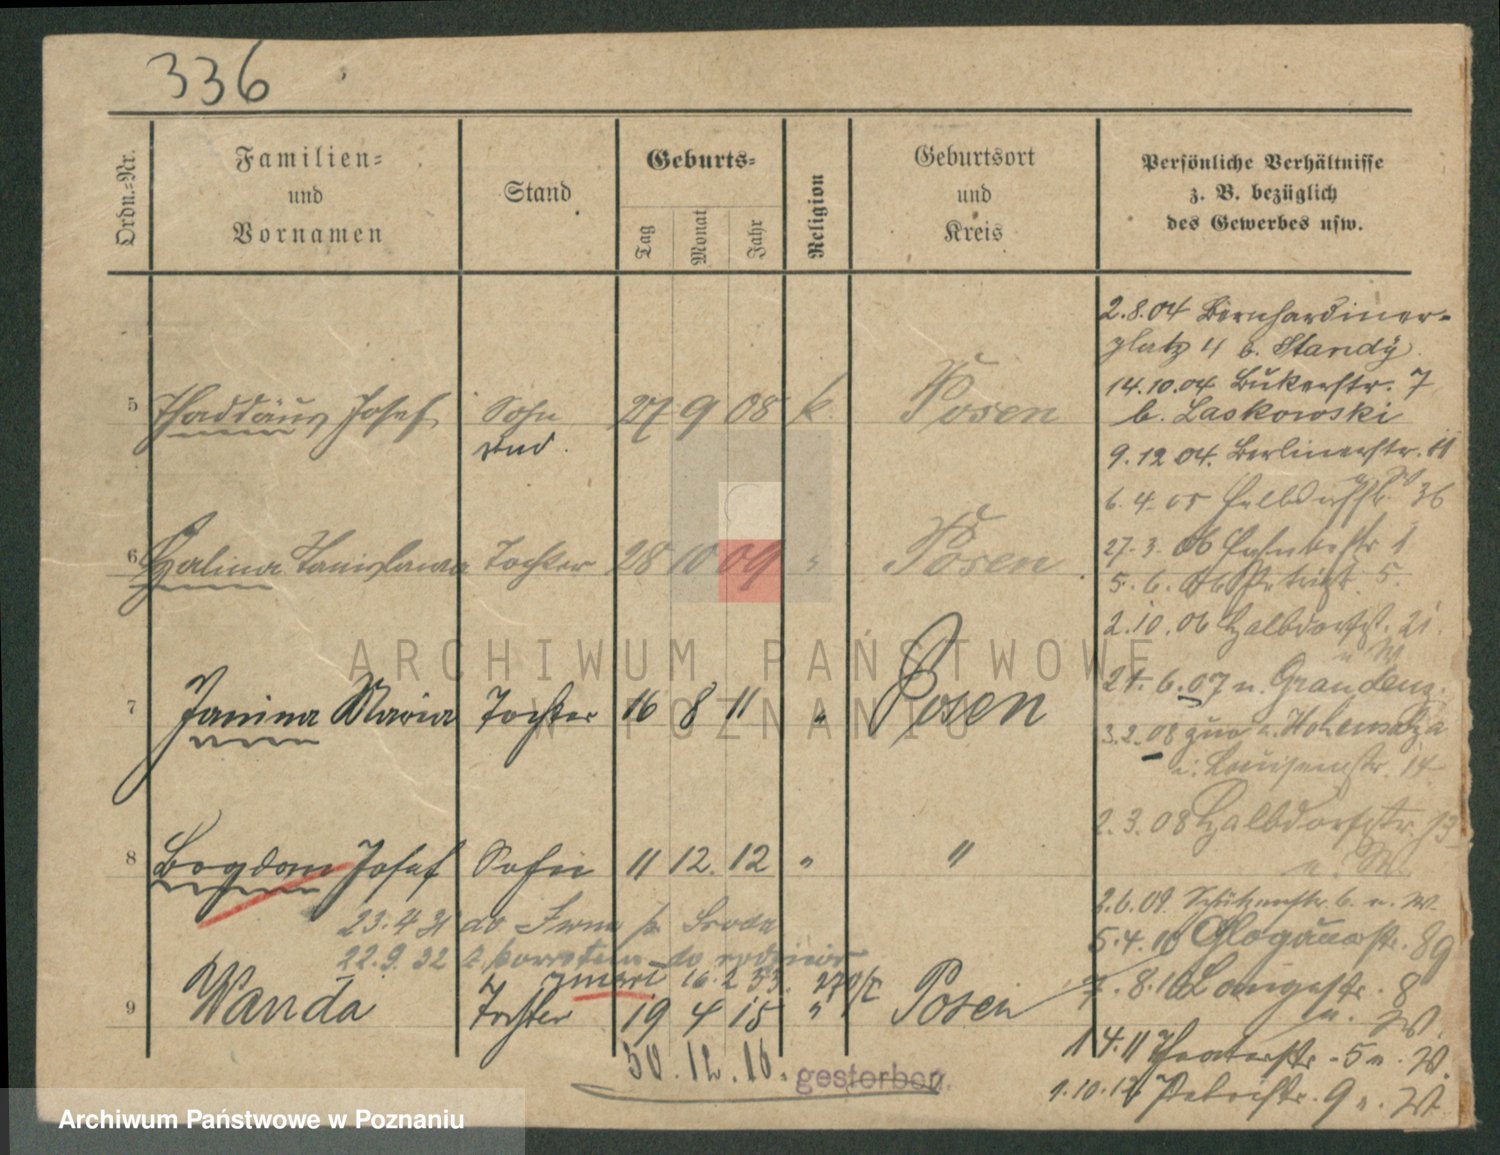 336
Ordn.-Nr.
Familien-
und
Vornamen
Stand
Geburts-
Tag
Monat
Jahr
Religion
Geburtsort
und
Kreis
Persönliche Verhältnisse
z. B. bezüglich
des Gewerbes usw.
2.8.04 Bernhardiner-
platz 4 b. Standy
14.10.04 Bukerstr. 7
b. Laskowski
9.12.04. Berlinerstr. 11
6.4.05 Halbdorfstr. 36
27.3.06 1
5.6.06 Petristr. 5.
2.10.06 Halbdorfstr. 21.
21.6.07 n. Graudenz.
3.2.08 zur. v. Hohensalza
n. Louisenstr. 14
2.3.08 Halbdorfstr. 13
u. W.
2.6.09. Schützenstr. 6. u. W.
5.4.10 Glogauerstr. 89
7.8.10 Langestr. 8
u. W.
1.4.11 Theaterstr. 5 u. W.
1.10.12 Petristr. 9 u. W.
5 Thaddäus Josef Sohn 27 9 08 k. Posen
6 Halina Stanislawa Tochter 28 10 09 " Posen
7 Janina Maria Tochter 16 8 11 " Posen
8 Bogdan Josef Sohn 11 12. 12 " "
23.4.31 do Środa
22.9.32 z powrotem do rodziców
zmarł 16.2.33. 270/I
9 Wanda Tochter 19 4 15 " Posen
30.12.16. gestorben.
ARCHIWUM PAŃSTWOWE
W POZNANIU
Archiwum Państwowe w Poznaniu